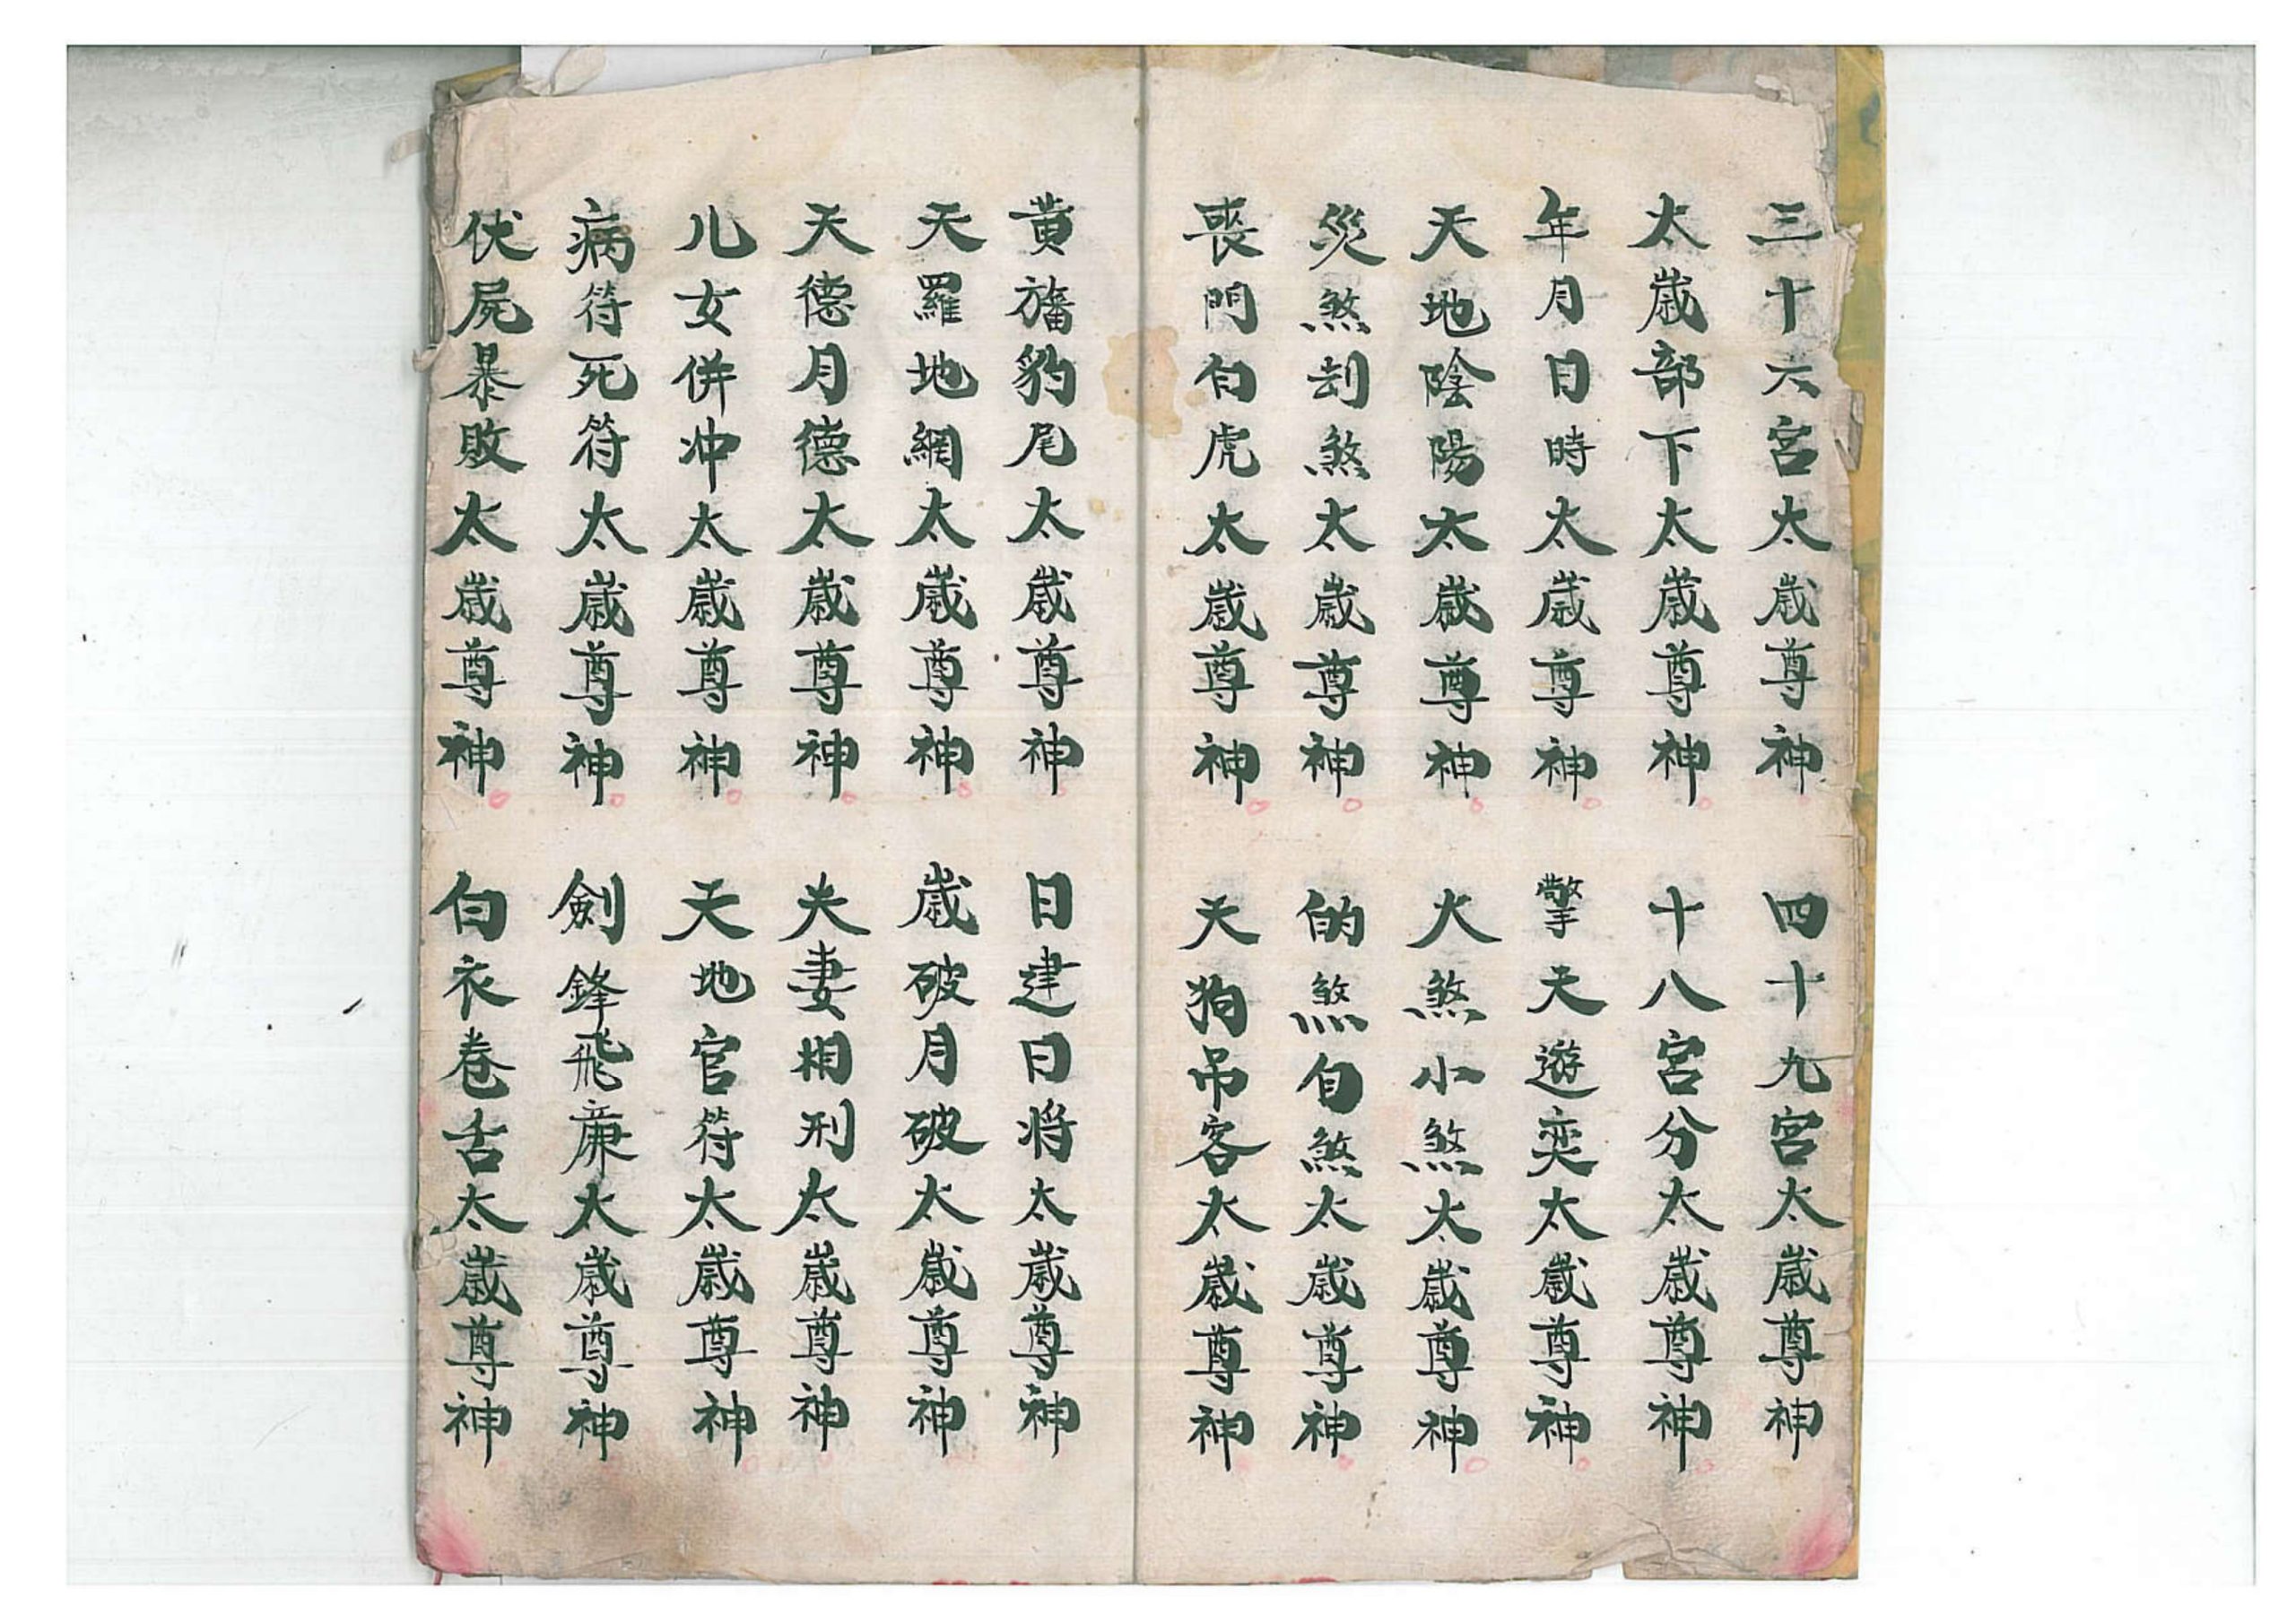 三十六宮太歲尊神 四十九宮太歲尊神
太歲部下太歲尊神 十八宮分太歲尊神
年月日時太歲尊神 擎天遊奕太歲尊神
天地陰陽太歲尊神 火煞小煞太歲尊神
災煞刦煞太歲尊神 的煞自煞太歲尊神
喪門白虎太歲尊神 天狗吊客太歲尊神
黃旛豹尾太歲尊神 日建日将太歲尊神
天羅地網太歲尊神 歲破月破太歲尊神
天德月德太歲尊神 夫妻相刑太歲尊神
儿女併冲太歲尊神 天地官符太歲尊神
病符死符太歲尊神 劍鋒飛廉太歲尊神
伏屍暴敗太歲尊神 白衣卷舌太歲尊神